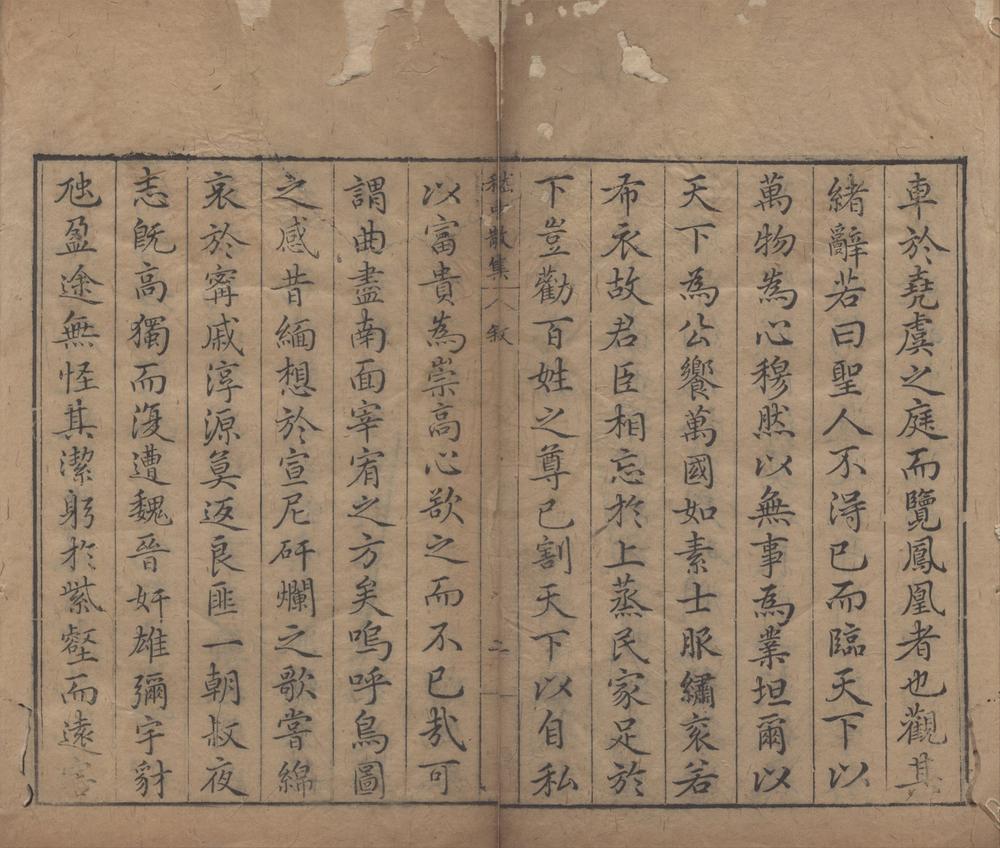 車於堯虞之庭而覽鳳凰者也觀其
緒辭若曰聖人不淂已而臨天下以
萬物為心穆然以無事為業坦爾以
天下為公饗萬國如素士服繡衮若
布衣故君臣相忘於上蒸民家足於
下豈勸百姓之尊已割天下以自私
嵇中散集 八 叙 二
以富貴為崇高心欲之而不已哉可
謂曲盡南面宰宥之方矣嗚呼鳥圖
之感昔緬想於宣尼矸爛之歌嘗綿
哀於甯戚淳源莫返良匪一朝叔夜
志旣高獨而復遭魏晉奸雄彌宇豺
虺盈途無怪其潔躬於紫壑而遠害